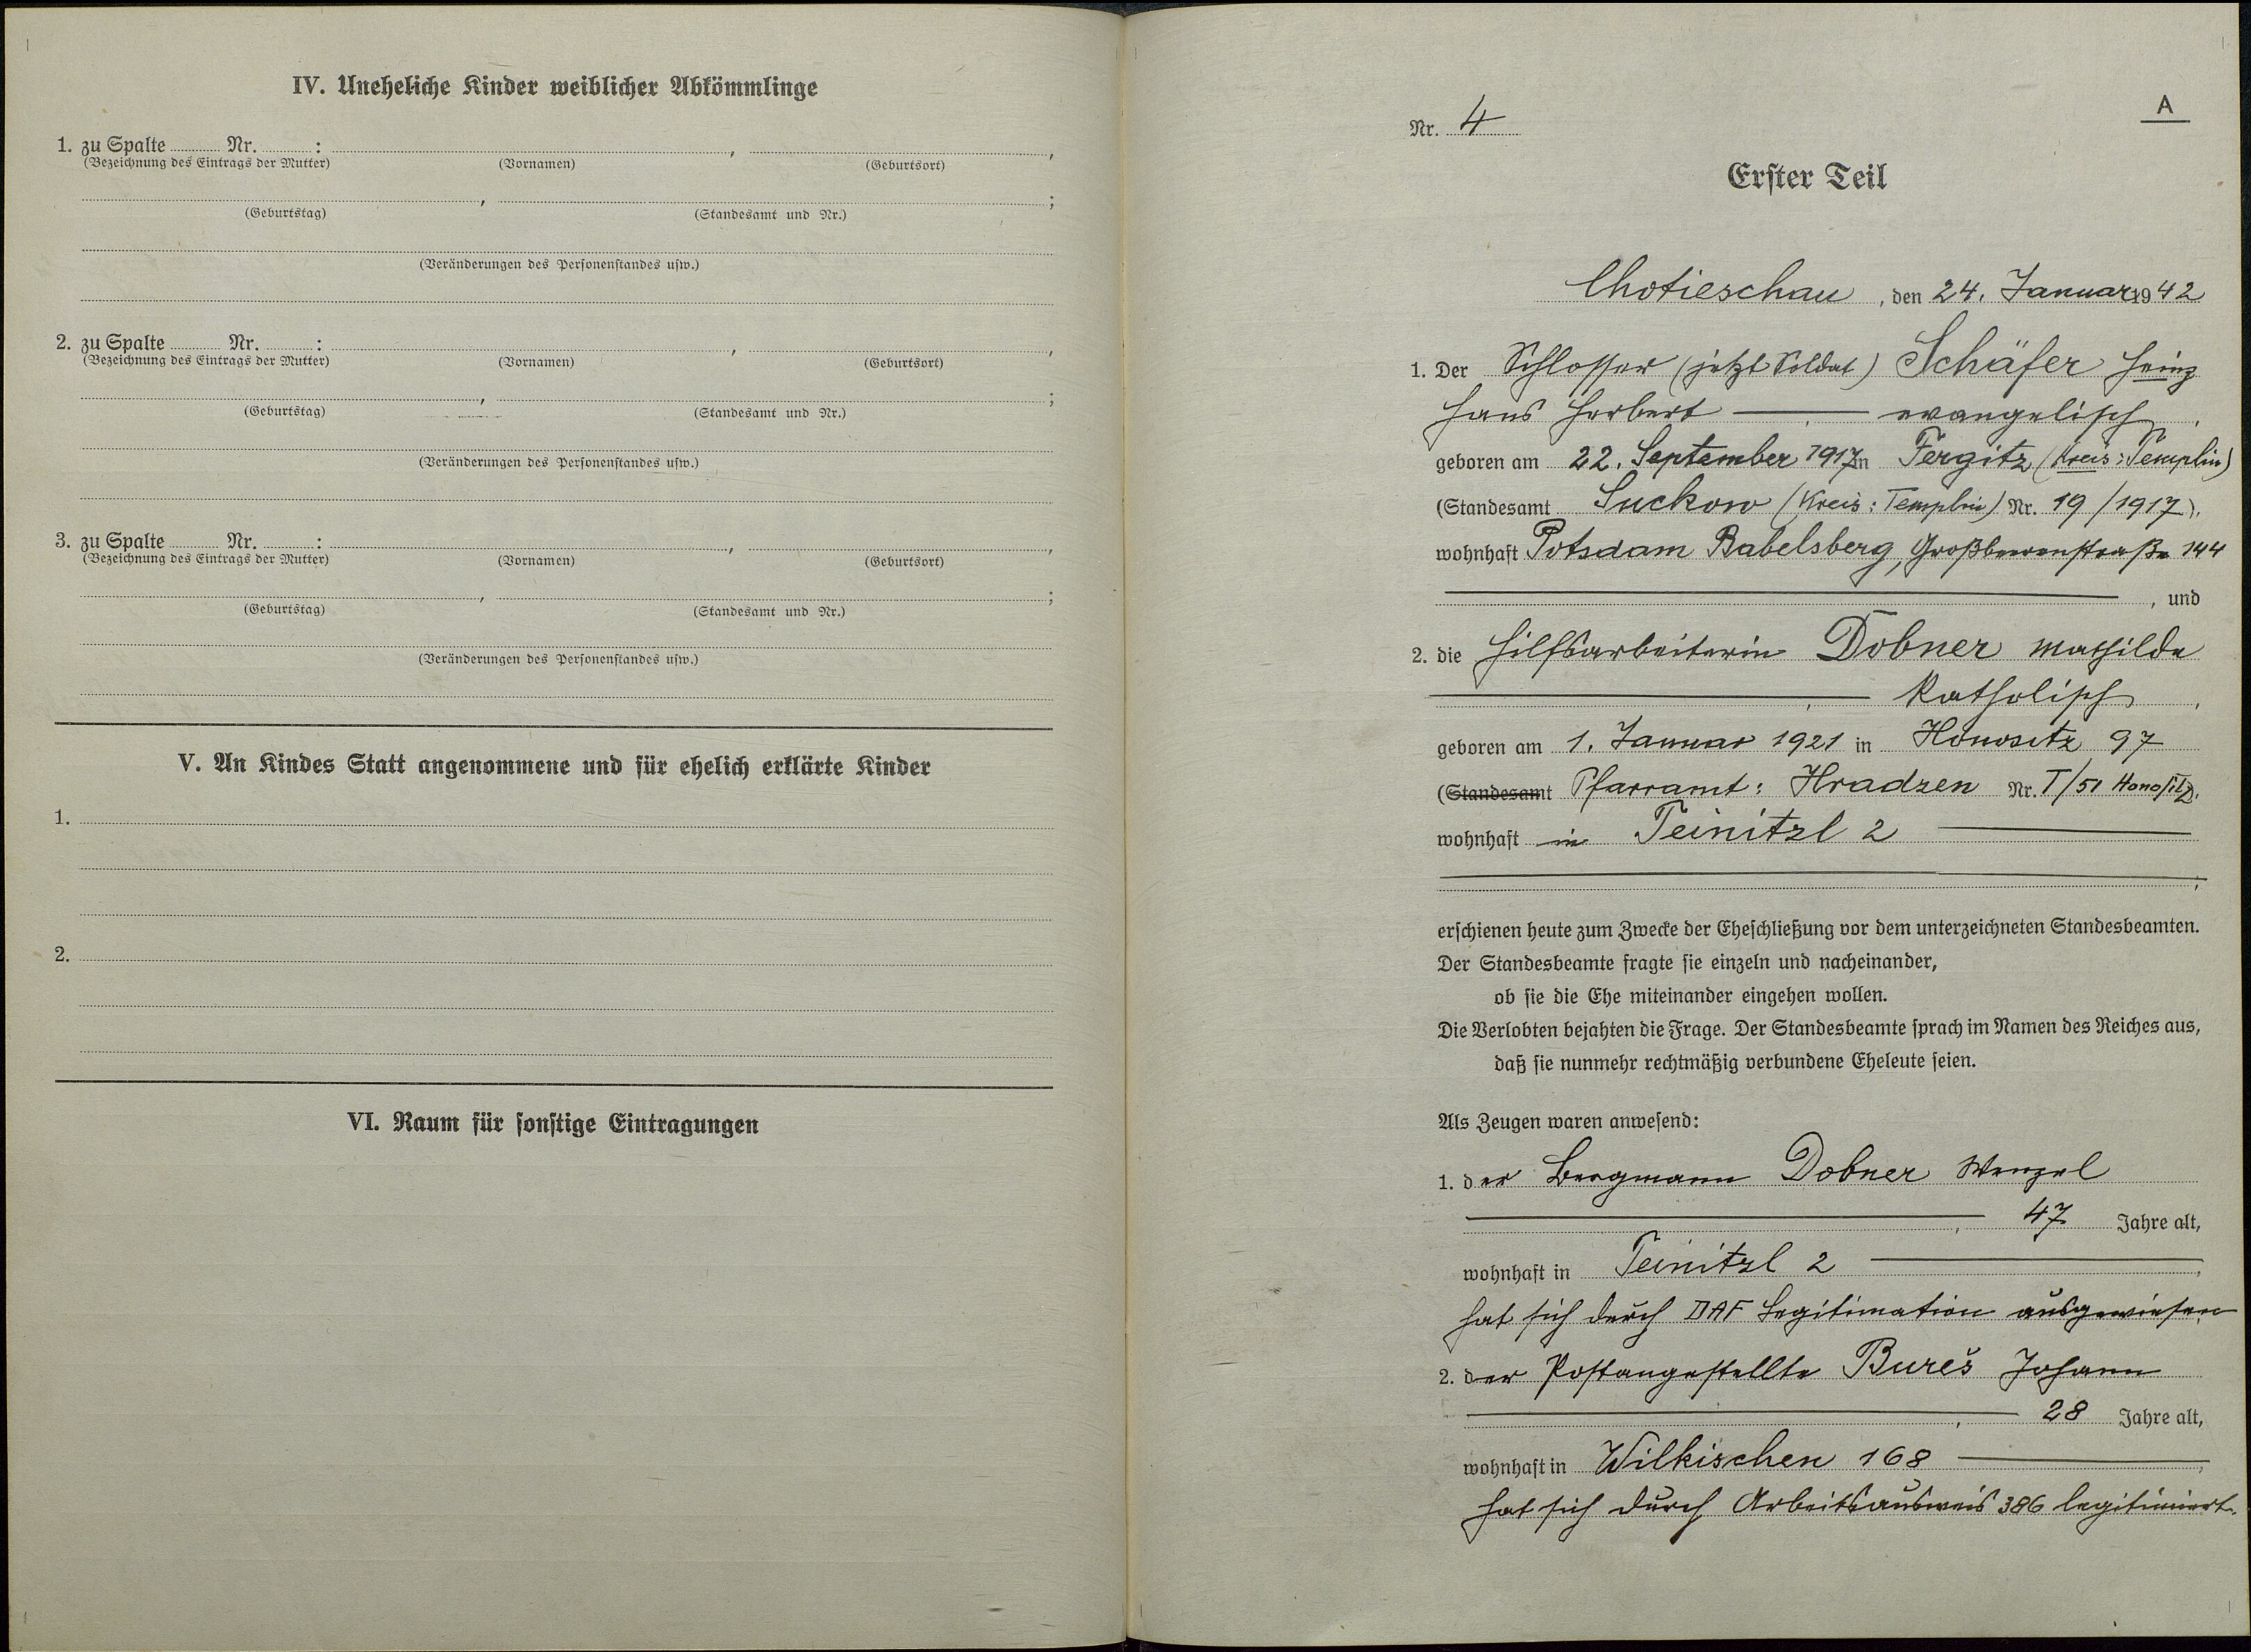 IV. Uneheliche Kinder weiblicher Abkömmlinge
1. zu Spalte Nr. : , ,
(Bezeichnung des Eintrags der Mutter) (Vornamen) (Geburtsort)
, ;
(Geburtstag) (Standesamt und Nr.)
(Veränderungen des Personenstandes usw.)
2. zu Spalte Nr. : , ,
(Bezeichnung des Eintrags der Mutter) (Vornamen) (Geburtsort)
, ;
(Geburtstag) (Standesamt und Nr.)
(Veränderungen des Personenstandes usw.)
3. zu Spalte Nr. : , ,
(Bezeichnung des Eintrags der Mutter) (Vornamen) (Geburtsort)
, ;
(Geburtstag) (Standesamt und Nr.)
(Veränderungen des Personenstandes usw.)
V. An Kindes Statt angenommene und für ehelich erklärte Kinder
1.
2.
VI. Raum für sonstige Eintragungen
A
Nr. 4
Erster Teil
Chotieschau, den 24. Januar 1942
1. Der Schlosser (jetzt Soldat) Schäfer Heinz
Hans Herbert — , — evangelisch,
geboren am 22. September 1917 in Fergitz (Kreis: Templin)
(Standesamt Suckow (Kreis: Templin) Nr. 19/1917),
wohnhaft Potsdam Babelsberg, Großbeerenstraße 144
, und
2. die Hilfsarbeiterin Dobner Mathilde
, — katholisch,
geboren am 1. Januar 1921 in Honositz 97
(Standesamt Pfarramt: Hradzen Nr. I/51 Honositz),
wohnhaft in Teinitzl 2
;
erschienen heute zum Zwecke der Eheschließung vor dem unterzeichneten Standesbeamten.
Der Standesbeamte fragte sie einzeln und nacheinander,
ob sie die Ehe miteinander eingehen wollen.
Die Verlobten bejahten die Frage. Der Standesbeamte sprach im Namen des Reiches aus,
daß sie nunmehr rechtmäßig verbundene Eheleute seien.
Als Zeugen waren anwesend:
1. der Bergmann Dobner Wenzel
, 47 Jahre alt,
wohnhaft in Teinitzl 2,
hat sich durch DAF Legitimation ausgewiesen,
2. der Postangestellte Bureš Johann
, 28 Jahre alt,
wohnhaft in Wilkischen 168,
hat sich durch Arbeitsausweis 386 legitimiert.